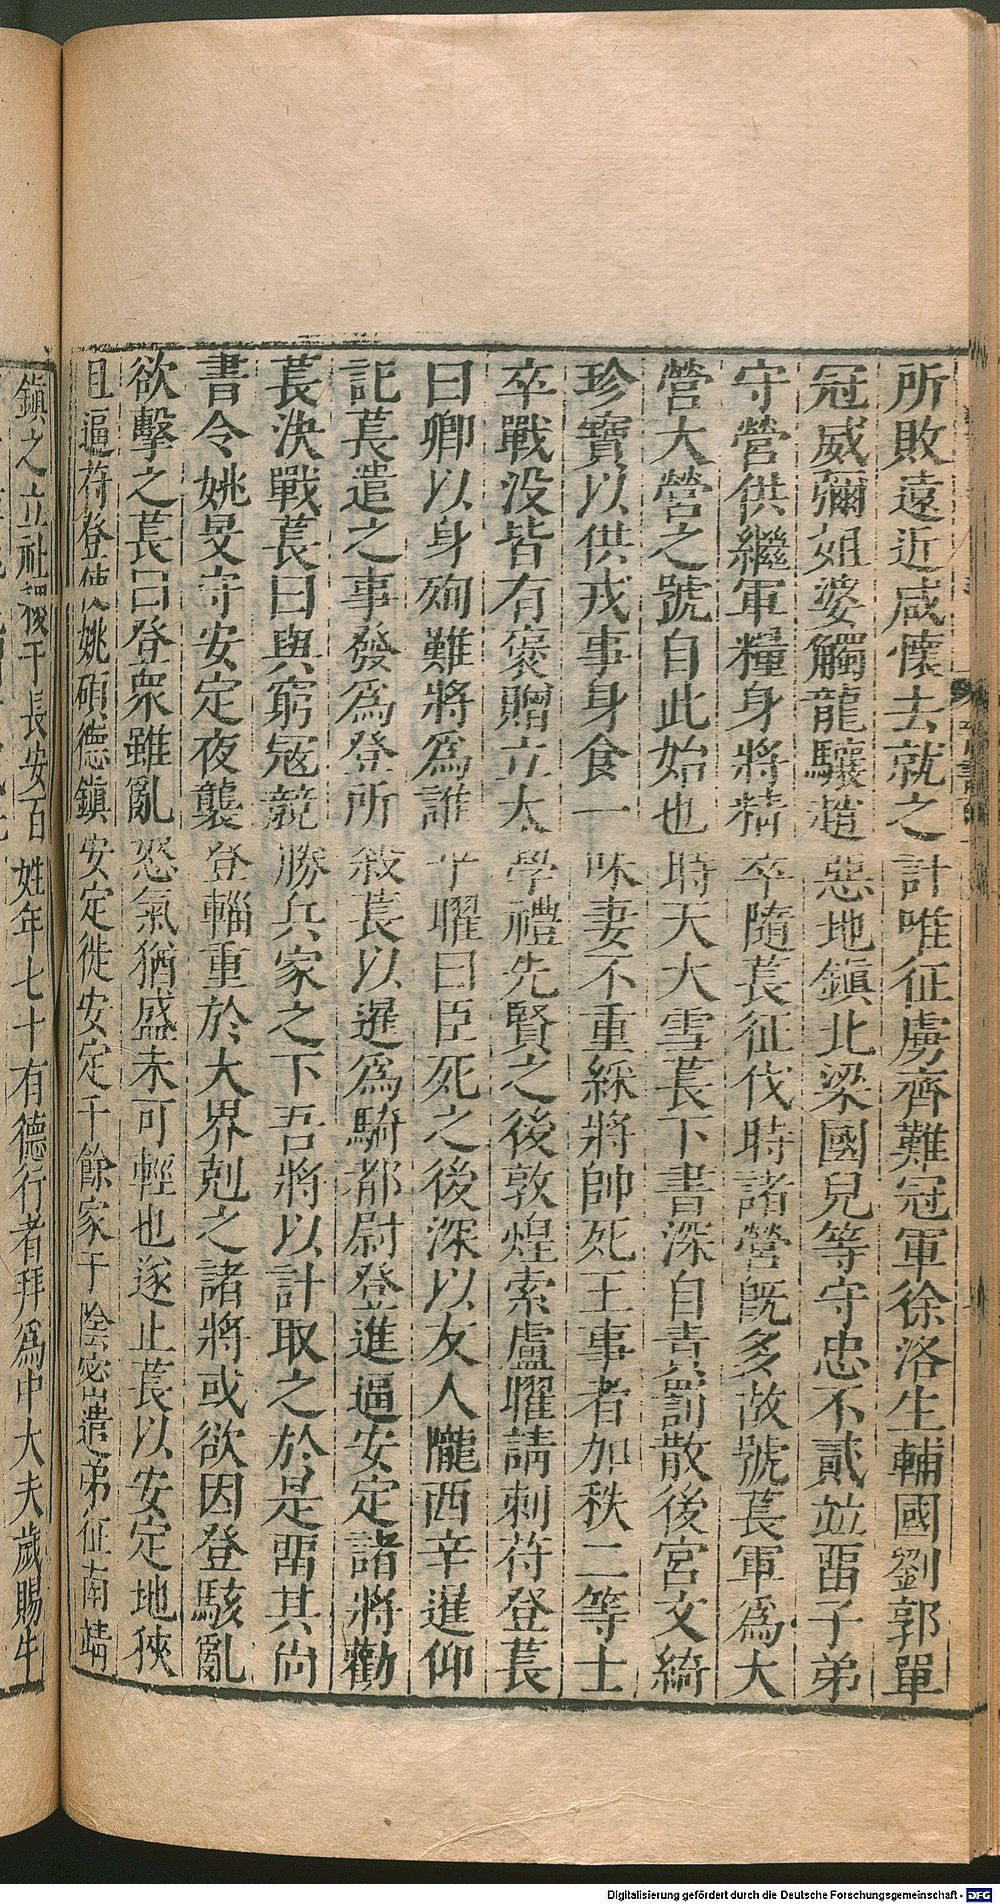 所敗遠近咸懷去就之計唯征虜齊難冠軍徐洛生輔國劉郭單
冠威彌姐婆觸龍驤趙惡地鎮北梁國兒等守忠不貳竝畱子弟
守營供繼軍糧身將精卒隨萇征伐時諸營旣多故號萇軍爲大
營大營之號自此始也時天大雪萇下書深自責罰散後宮文綺
珍寶以供戎事身食一味妻不重綵將帥死王事者加秩二等士
卒戰没皆有褒贈立太學禮先賢之後敦煌索盧曜請刺苻登萇
曰卿以身殉難將爲誰乎曜曰臣死之後深以友人隴西辛暹仰
託萇遣之事發爲登所殺萇以暹爲騎都尉登進逼安定諸將勸
萇決戰萇曰與窮寇競勝兵家之下吾將以計取之於是畱其尚
書令姚旻守安定夜襲登輜重於大界剋之諸將或欲因登駭亂
欲擊之萇曰登衆雖亂怒氣猶盛未可輕也遂止萇以安定地狹
且逼苻登使姚碩德鎮安定徙安定千餘家于陰密遣弟征南靖
鎮之立社稷于長安百姓年七十有德行者拜爲中大夫歲賜牛
Digitalisierung gefördert durch die Deutsche Forschungsgemeinschaft - DFG